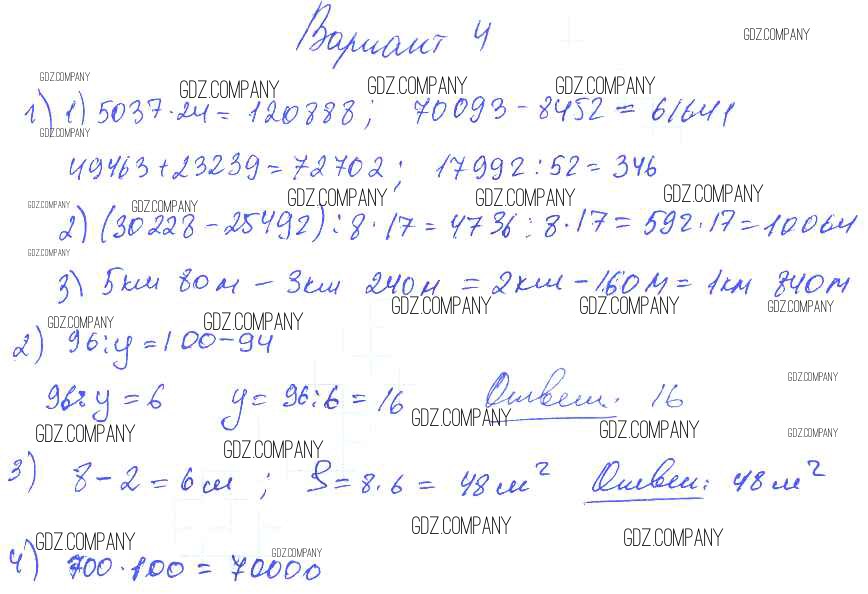 Вариант 4
GDZ.COMPANY
GDZ.COMPANY
GDZ.COMPANY GDZ.COMPANY GDZ.COMPANY
1) 1) 5037·24 = 120888; 70093 - 8452 = 61641
GDZ.COMPANY
49463 + 23239 = 72702; 17992 : 52 = 346
GDZ.COMPANY GDZ.COMPANY GDZ.COMPANY GDZ.COMPANY GDZ.COMPANY
2) (30228 - 25492) : 8 · 17 = 4736 : 8 · 17 = 592 · 17 = 10064
GDZ.COMPANY
3) 5км 80м - 3км 240м = 2км - 160м = 1км 840м
GDZ.COMPANY GDZ.COMPANY GDZ.COMPANY
GDZ.COMPANY GDZ.COMPANY
2) 96 : y = 100 - 94
GDZ.COMPANY
96 : y = 6 y = 96 : 6 = 16 Ответ: 16
GDZ.COMPANY GDZ.COMPANY GDZ.COMPANY GDZ.COMPANY
GDZ.COMPANY
3) 8 - 2 = 6 м ; S = 8 · 6 = 48 м² Ответ: 48 м²
GDZ.COMPANY
GDZ.COMPANY GDZ.COMPANY GDZ.COMPANY
4) 700 · 100 = 70000